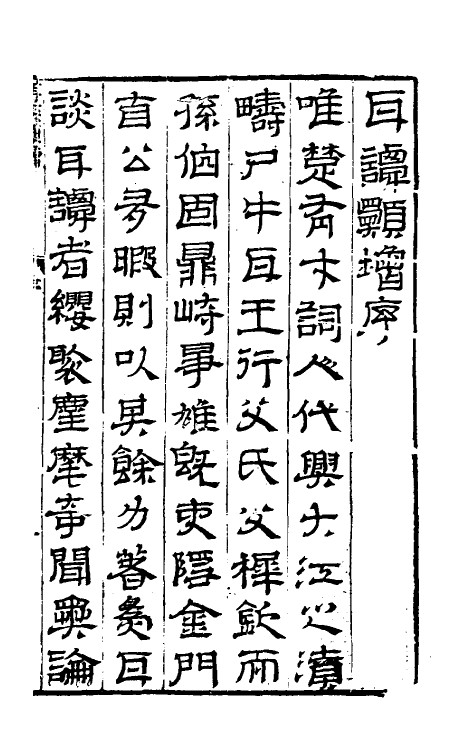 耳譚類增序
唯楚有才詞人代興大江之濱
疇尸牛耳王行父氏父稺欽而
孫伯固鼎峙爭雄旣吏隱金門
自公多暇則以其餘力著為耳
談耳譚者纓聚麈麾奇聞奧論